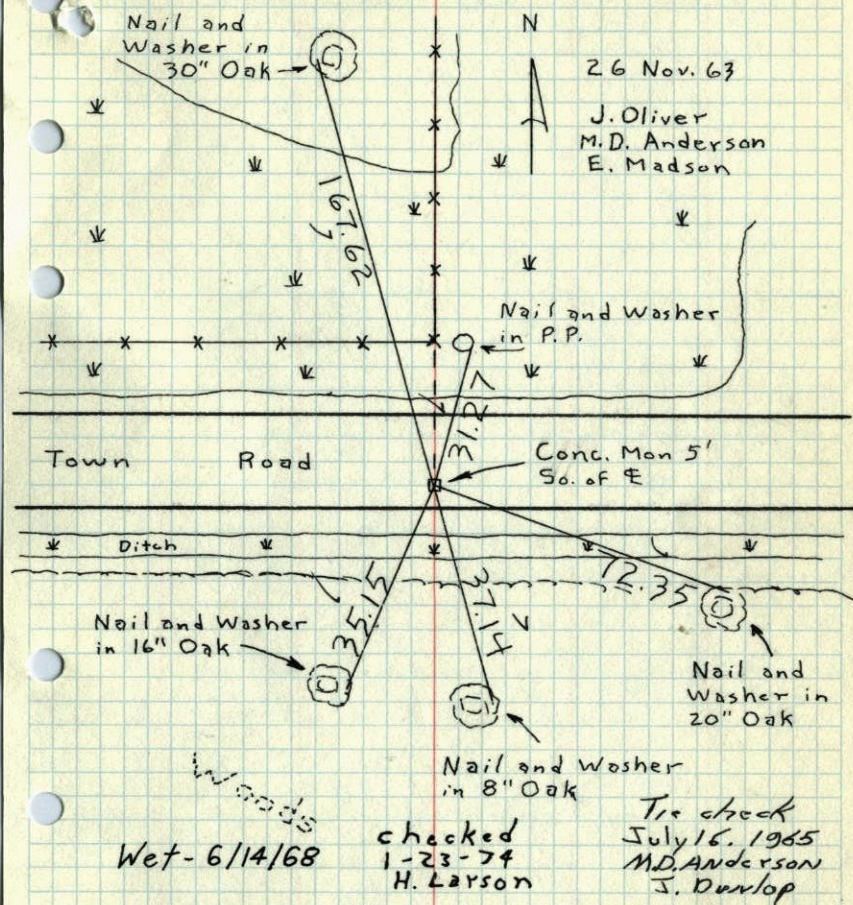 Nail and
Washer in
30" Oak
N
26 Nov. 63
J. Oliver
M.D. Anderson
E. Madson
167.62
Nail and Washer
in P.P.
31.27
Town Road
Conc. Mon 5'
So. of ℄
Ditch
72.35
35.15
37.14
Nail and Washer
in 16" Oak
Nail and
Washer in
20" Oak
Nail and Washer
in 8" Oak
Woods
Wet - 6/14/68
checked
1-23-74
H. Larson
Tie check
July 16. 1965
M.D. Anderson
J. Dunlop